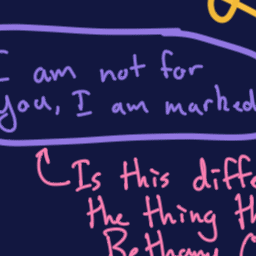 I am not for
you, I am marked
Is this diffe
the thing th
Bethany